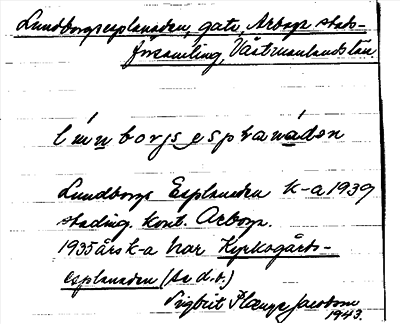 Lundborgsesplanaden, gata, Arboga stads-
församling, Västmanlands län.
Lundborgs Esplanaden k-a 1939
stading. kont. Arboga.
1935 års k-a har Kyrkogårds-
esplanaden (se d.o.)
Sigbrit Plænge Jacobson
1943.